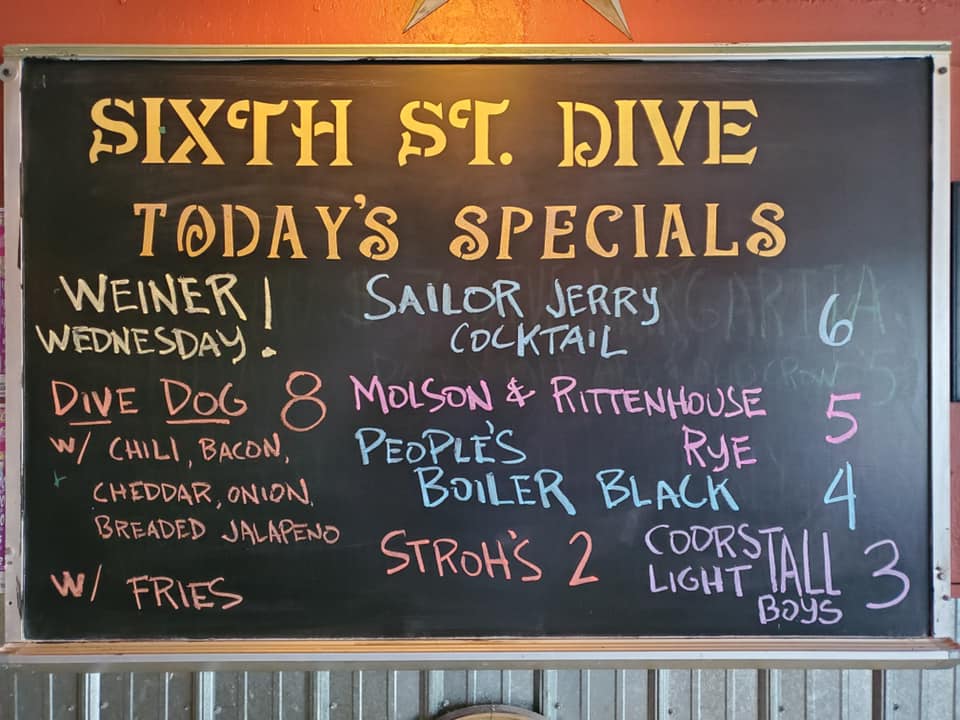 SIXTH ST. DIVE
TODAY'S SPECIALS
WEINER!
WEDNESDAY
DIVE DOG 8
W/ CHILI, BACON,
CHEDDAR, ONION,
BREADED JALAPENO
W/ FRIES
SAILOR JERRY
COCKTAIL 6
MOLSON & RITTENHOUSE
RYE 5
PEOPLE'S
BOILER BLACK 4
STROH'S 2
COORS
LIGHT TALL
BOYS 3